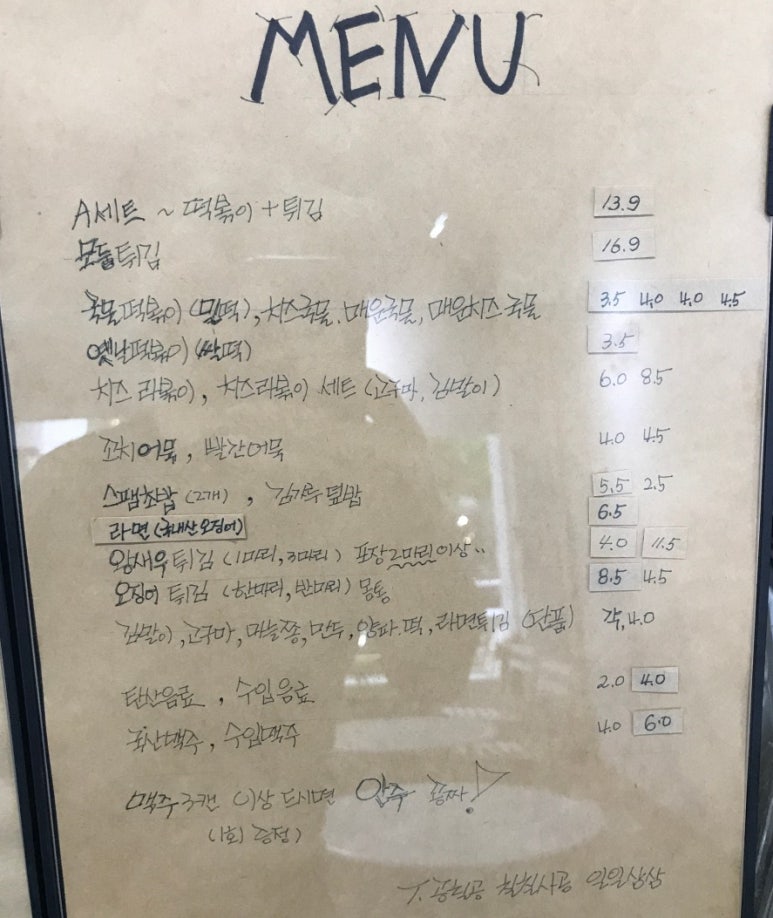 MENU
A세트 ~ 떡볶이 + 튀김 13.9
모듬튀김 16.9
국물떡볶이 (밀떡), 치즈국물, 매운국물, 매운치즈국물 3.5 4.0 4.0 4.5
옛날떡볶이 (쌀떡) 3.5
치즈 라볶이, 치즈라볶이 세트 (고구마, 김말이) 6.0 8.5
꼬치어묵, 빨간어묵 4.0 4.5
스팸초밥 (2개), 김가루 덮밥 5.5 2.5
라면 (국내산 오징어) 6.5
왕새우 튀김 (1마리, 3마리) 포장 2마리 이상.. 4.0 11.5
오징어 튀김 (한마리, 반마리) 몽통 8.5 4.5
김말이, 고구마, 마늘쫑, 만두, 양파, 떡, 라면튀김 (단품) 각, 4.0
탄산음료, 수입음료 2.0 4.0
국산맥주, 수입맥주 4.0 6.0
맥주 3캔 이상 드시면 안주 공짜!
(1회 증정)
T. 공칠공 칠칠사공 일일삼삼